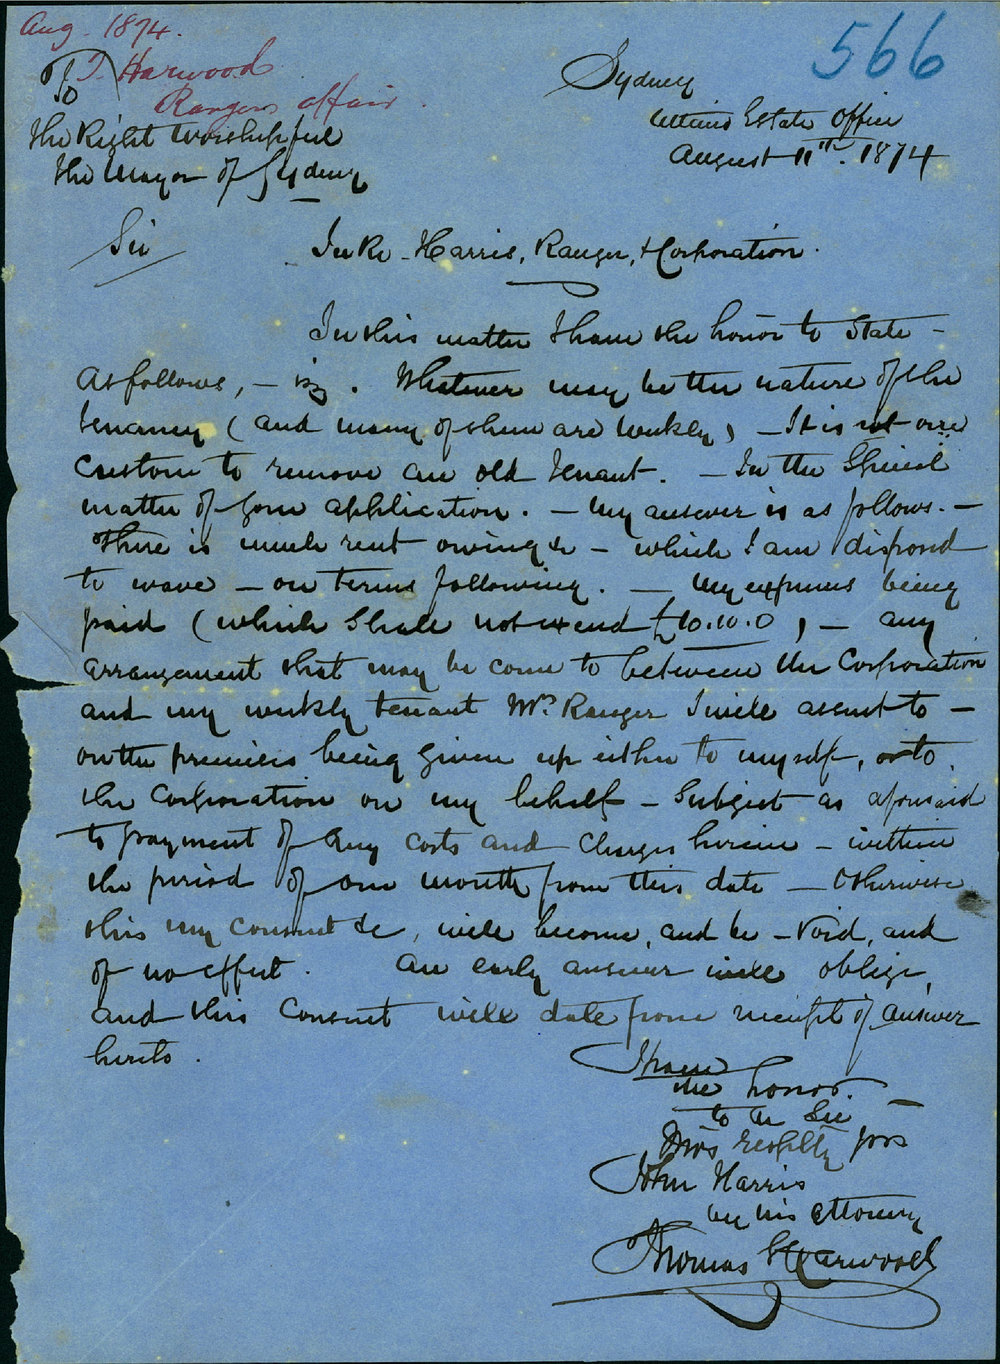 Aug. 1874.
T. Harwood
Rangers affair.
566
To
The Right Worshipful
The Mayor of Sydney
Sydney
Ultimo Estate Office
August 11th. 1874
Sir
In Re - Harris, Ranger, & Corporation.
In this matter I have the honor to state -
As follows, - viz. Whatever may be the nature of the
tenancy (and many of them are weekly) - It is not our
custom to remove an old tenant. - In the Special
matter of your application. - my answer is as follows. -
There is much rent owing &c - which I am disposed
to wave - on terms following. - My expenses being
paid (which shall not exceed £10.10.0) - any
arrangement that may be come to between the Corporation
and my weekly tenant Mr. Ranger I will assent to -
on the premises being given up either to myself, or to
the Corporation on my behalf - Subject as aforesaid
to payment of any costs and charges herein - within
the period of one month from this date - Otherwise
this my consent &c, will become, and be - Void, and
of no effect. An early answer will oblige,
and this Consent will date from receipt of answer
hereto.
I have
the honor.
to be Sir -
John Harris
by his attorney
Thomas Harwood